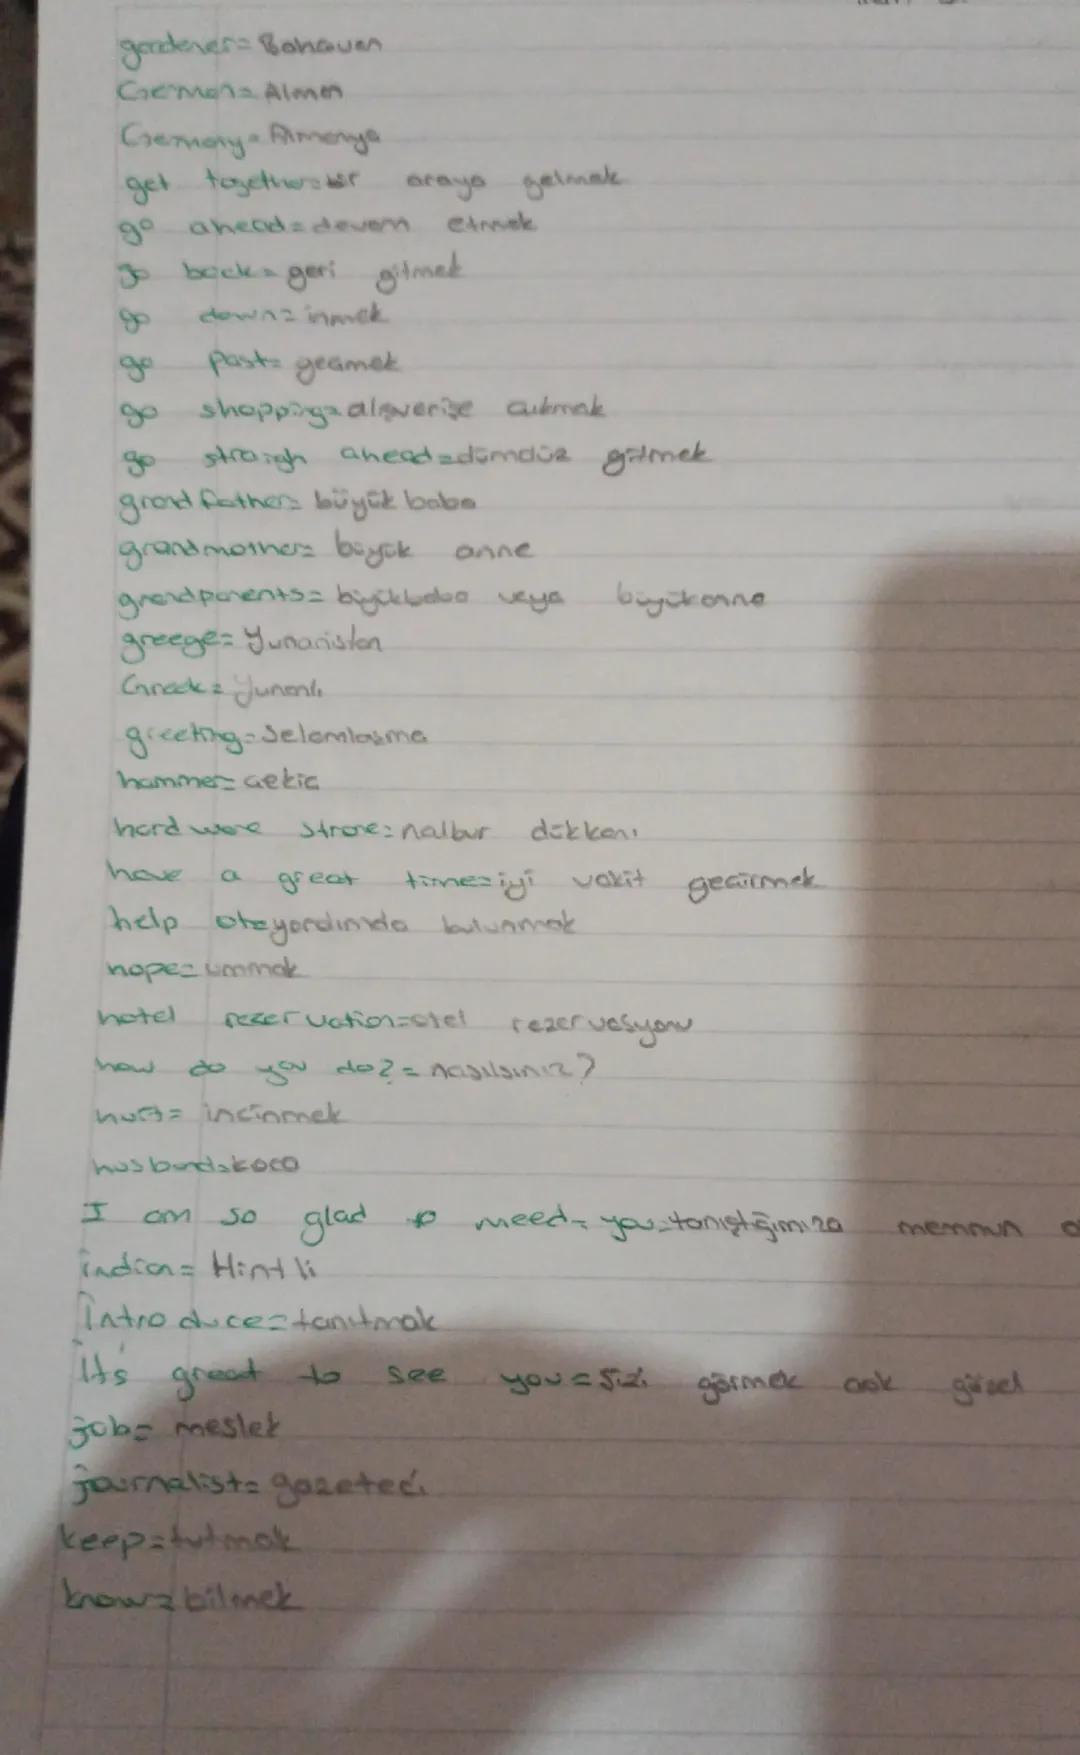 gardener= Bahçıvan
German= Alman
Germany= Almanya
get together= bir araya gelmek
go ahead= devam etmek
go back= geri gitmek
go down= inmek
go past= geçmek
go shopping= alışverişe çıkmak
go straigh ahead=dümdüz gitmek
grand father= büyük baba
grandmother= büyük anne
grandparents= büyükbaba veya büyükanne
greege= Yunanistan
Greek= Yunanlı
greeting= Selamlaşma
hammer= çekiç
hard ware strore= nalbur dükkanı
have a great time=iyi vakit geçirmek
help yardımda bulunmak
hope= ummak
hotel rezervation=otel rezervasyonu
how do you do?= nasılsınız?
hurt= incinmek
husband=koca
I am so glad to meed= you=tanıştığımıza memnun
indian= Hintli
introduce=tanıtmak
it's great to see you= sizi görmek çok güzel
job= meslek
journalist= gazeteci
keep=tutmak
know=bilmek